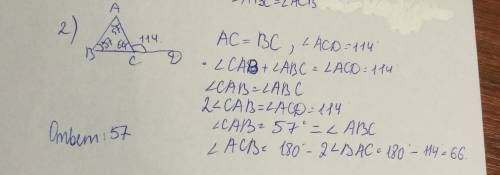 ∠ABC = ∠ACB
2)
A
57
114.
B 57 66 C D
AC = BC, ∠ACD = 114°
∠CAB + ∠ABC = ∠ACD = 114°
∠CAB = ∠ABC
2∠CAB = ∠ACD = 114°
∠CAB = 57° = ∠ABC
∠ACB = 180° - 2∠BAC = 180° - 114 = 66.
Ответ: 57